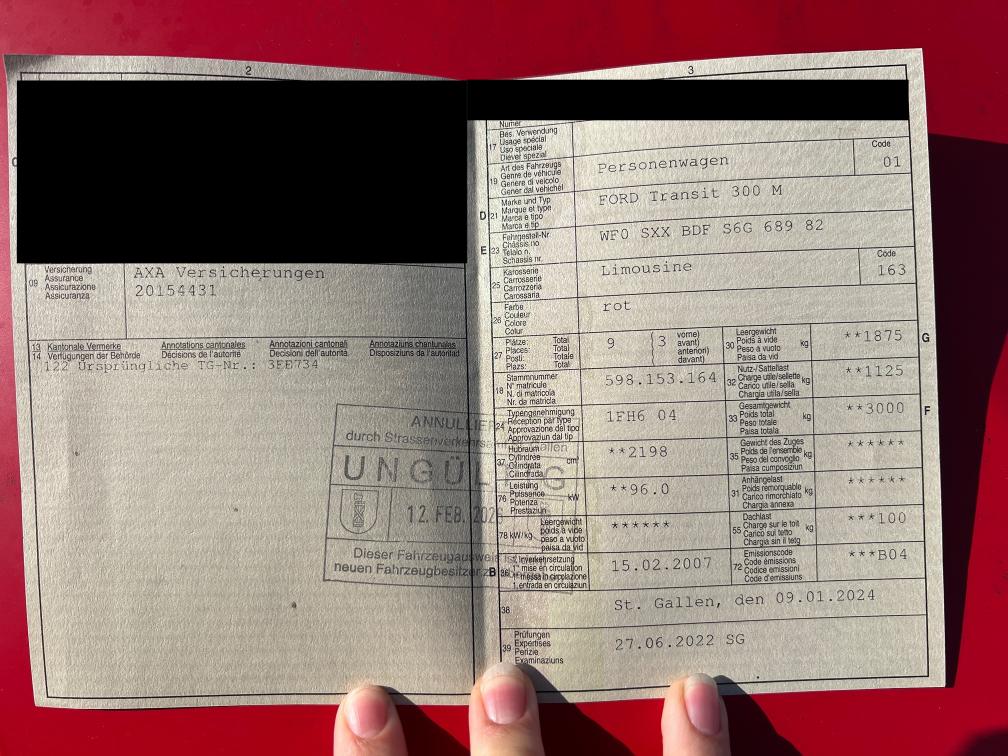 2
09 Versicherung
Assurance
Assicurazione
Assicuranza
AXA Versicherungen
20154431
13 Kantonale Vermerke Annotations cantonales Annotazioni cantonali Annotaziuns chantunalas
14 Verfügungen der Behörde Décisions de l'autorité Decisioni dell'autorità Disposiziuns da l'autoritad
122 Ursprüngliche TG-Nr.: 3EB734
ANNULLIER
durch Strassenverkehrsam Gallen
UNGÜL G
12. FEB. 2026
Dieser Fahrzeugausweis
neuen Fahrzeugbesitzer
3
Numer
17 Bes. Verwendung
Usage spécial
Uso speciale
Diever spezial
19 Art des Fahrzeugs
Genre de véhicule
Genere di veicolo
Gener dal vehichel
Personenwagen
Code
01
D 21 Marke und Typ
Marque et type
Marca e tipo
Marca e tip
FORD Transit 300 M
E 23 Fahrgestell-Nr.
Châssis no
Telaio n.
Schassis nr.
WF0 SXX BDF S6G 689 82
25 Karosserie
Carrosserie
Carrozzeria
Carossaria
Limousine
Code
163
26 Farbe
Couleur
Colore
Colur
rot
27 Plätze: Total
Places: Total
Posti: Totale
Plazs: Total
9 (3 vorne)
avant)
anteriori)
davant)
30 Leergewicht
Poids à vide
Peso a vuoto
Paisa da vid
kg
**1875
G
18 Stammnummer
N° matricule
N. di matricola
Nr. da matricla
598.153.164
32 Nutz-/Sattellast
Charge utile/sellette
Carico utile/sella
Chargia utila/sella
kg
**1125
24 Typengenehmigung
Réception par type
Approvazione del tipo
Approvaziun dal tip
1FH6 04
33 Gesamtgewicht
Poids total
Peso totale
Paisa totala
kg
**3000
F
37 Hubraum
Cylindrée
Cilindrata
Cilindrada
cm³
**2198
35 Gewicht des Zuges
Poids de l'ensemble
Peso del convoglio
Paisa cumposiziun
kg
******
76 Leistung
Puissance
Potenza
Prestaziun
kW
**96.0
31 Anhängelast
Poids remorquable
Carico rimorchiato
Chargia annexa
kg
******
78 kW/kg Leergewicht
poids à vide
peso a vuoto
paisa da vid
******
55 Dachlast
Charge sur le toit
Carico sul tetto
Chargia sin il tetg
kg
***100
B 36 1. Inverkehrsetzung
1re mise en circulation
1. messa in circolazione
1. entrada en circulaziun
15.02.2007
72 Emissionscode
Code émissions
Codice emissioni
Code d'emissiuns
***B04
38
St. Gallen, den 09.01.2024
39 Prüfungen
Expertises
Perizie
Examinaziuns
27.06.2022 SG